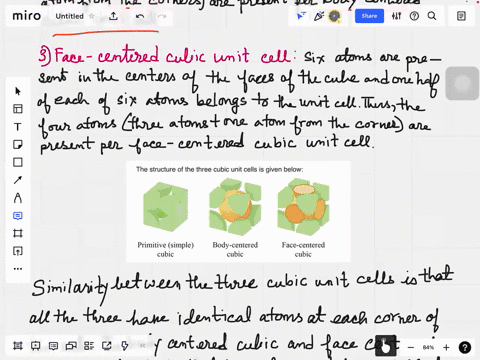 atom from the corners) are present per body centered
miro Untitled Share
3) Face-centered cubic unit cell: Six atoms are pre-
sent in the centers of the faces of the cube and one half
of each of six atoms belongs to the unit cell. Thus, the
four atoms (three atoms + one atom from the corner) are
present per face-centered cubic unit cell.
The structure of the three cubic unit cells is given below:
Primitive (simple) cubic
Body-centered cubic
Face-centered cubic
Similarity between the three cubic unit cells is that
all the three have identical atoms at each corner of
centered cubic and face
84%